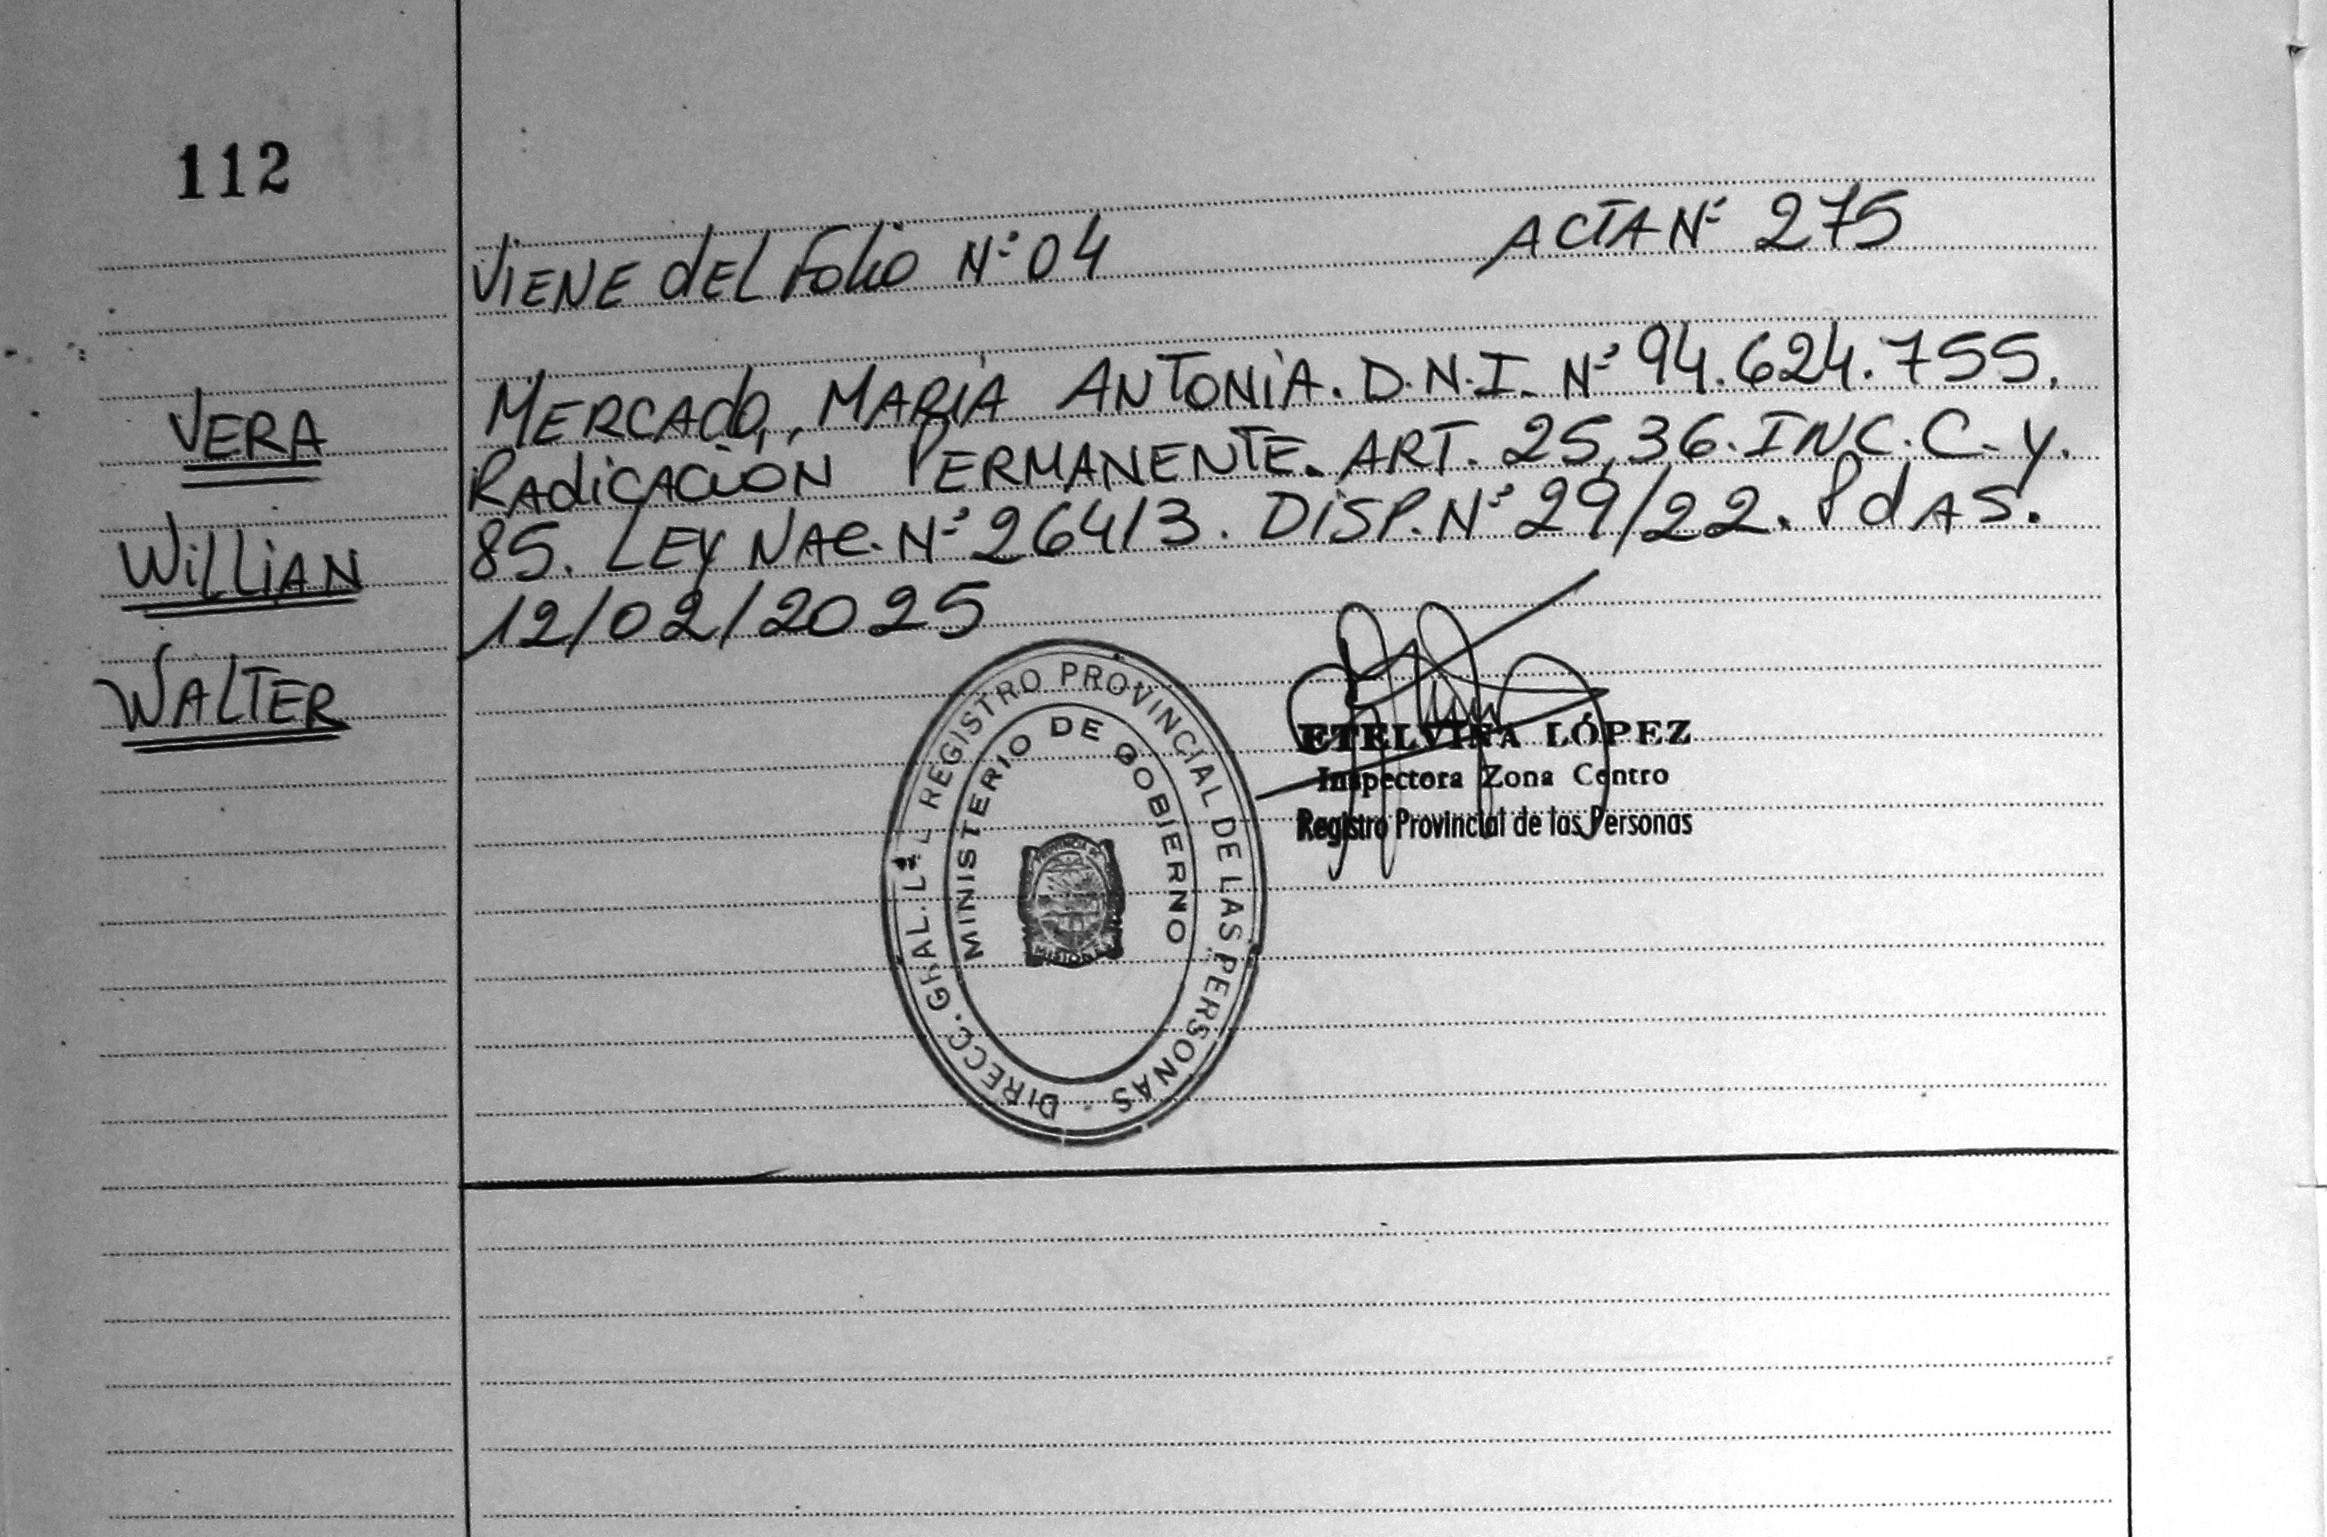 112
VIENE dEL Folio N° 04
ACTA N° 275
VERA
WiLLiAN
WALTER
MERCAdo, MARiA ANTONiA. D.N.I. N° 94.624.755.
RAdiCACiÓN PERMANENTE. ART. 25,36. INC. C. y.
85. LEY NAC. N° 26413. DiSP. N° 29/22. PdAS.
12/02/2025
DIRECC. GRAL. REGISTRO PROVINCIAL DE LAS PERSONAS
MINISTERIO DE GOBIERNO
PROVINCIA DE
MISIONES
ETELVINA LÓPEZ
Inspectora Zona Centro
Registro Provincial de las Personas